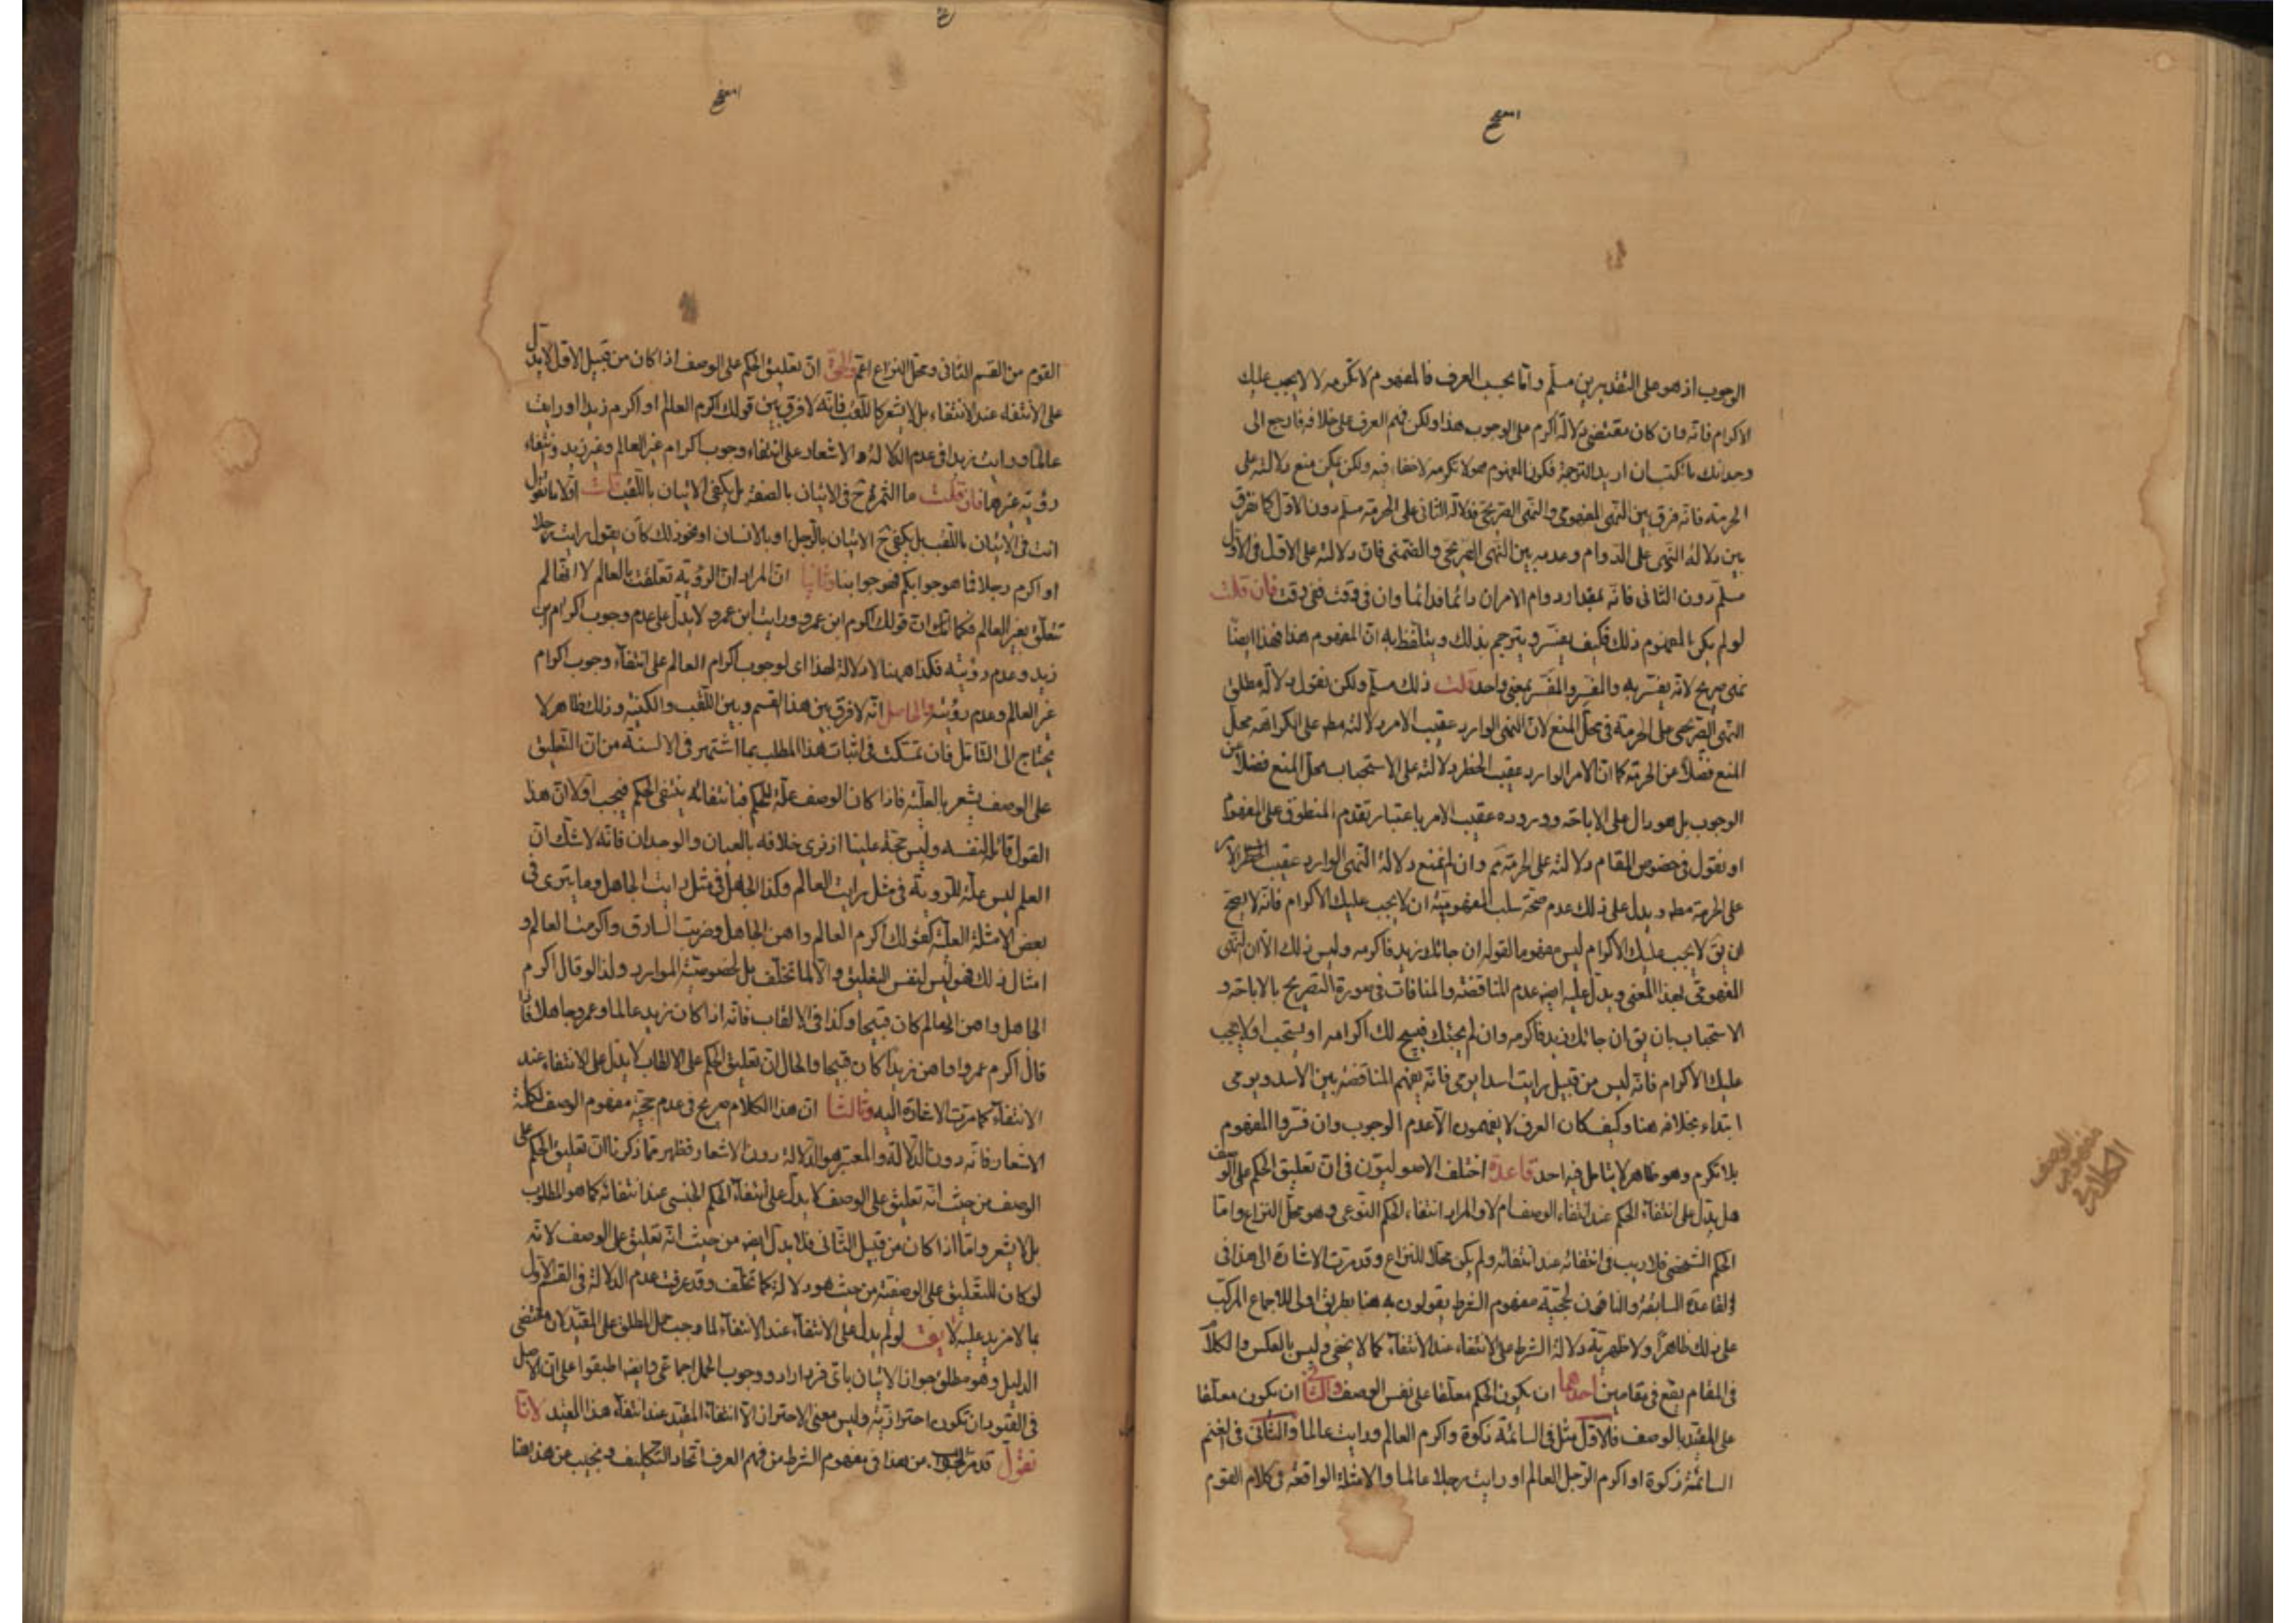 الوجوب اذ هو على التقديرين مسلّم وامّا بحسب العرف فالمفهوم لا تكرمه لا لا يجب عليك
الاكرام فانّه وان كان مقتضى دلالة اكرم على الوجوب هذا ولكن فهم العرف على خلافه فارجع الى
وجدانك
الحرمة فانّه فرق بين النهى المفهومى والنهى الصريحى فدلالة الثانى على الحرمة مسلّم دون الاوّل كما نفرق
بين دلالة النهى على الدوام وعدمه بين النهى الصريحى والضمنى فانّ دلالته على الاوّل فى الاوّل
مسلّم دون الثانى فانّه بمقدار دوام الامر ان دائما فدائما وان فى وقت ففى وقت فان قلت
لو لم يكن المفهوم ذلك فكيف يفسّر ويترجم بذلك ويتلفّظ به انّ المفهوم هذا فهذا ايضا
نهى صريح لانّه يفسّر به والمفسِّر والمفسَّر بمعنى واحد قلت ذلك مسلّم ولكن نقول دلالة مطلق
النهى الصريحى على الحرمة فى محلّ المنع لانّ النهى الوارد عقيب الامر دلالته مط على الكراهة محلّ
المنع فضلا عن الحرمة كما انّ الامر الوارد عقيب الحظر دلالته على الاستحباب محلّ المنع فضلا عن
الوجوب بل هو دال على الاباحة ووروده عقيب الامر باعتبار تقدم المنطوق على المفهوم
او نقول فى خصوص المقام دلالته على الحرمة مم وان لم نمنع دلالة النهى الوارد عقيب الامر
على الحرمة مط ويدل على ذلك عدم صحّة سلب المفهوميّة ان لا يجب عليك الاكرام فانّه لا يصحّ
ان يق لا يجب عليك الاكرام ليس مفهوما لقوله ان جائك زيد فاكرمه وليس ذلك الّا ان النهى
المفهومى بهذا المعنى ويدلّ عليه ايض عدم المناقضة والمنافات فى صورة التصريح بالاباحة و
الاستحباب بان يق ان جائك زيد فاكرمه وان لم يجئك فيبيح لك اكرامه او يستحب او لا يجب
عليك الاكرام فانّه ليس من قبيل رايت اسدا يرمى فانّه يفهم المناقضة بين الاسد ويرمى
ابتداء بخلافه هنا وكيف كان العرف لا يفهمون الّا عدم الوجوب وان فسّروا المفهوم
بلا تكرم وهو ظاهر لا يتامل فيه احد قاعدة اختلف الاصوليّون فى انّ تعليق الحكم على الوصف
هل يدلّ على انتفاء الحكم عند انتفاء الوصف ام لا والمراد انتفاء الحكم النّوعى وهو محلّ النزاع وامّا
الحكم الشخصى فلا ريب فى انتفائه عند انتفائه ولم يكن محلا للنزاع وقد مرّت الاشارة الى هذا فى
القاعدة السابقة والنافون لحجيّة مفهوم الشرط يقولون به هنا بطريق اولى للاجماع المركّب
على ذلك ظاهرا ولاظهريّة دلالة الشرط على الانتفاء عند الانتفاء كما لا يخفى وليس بالعكس والكلام
فى المقام يقع فى مقامين احدهما ان يكون الحكم معلّقا على نفس الوصف ان يكون معلّقا
على المقيّد بالوصف فالاوّل مثل فى السائمة زكوة واكرم العالم ورايت عالما والثانى فى الغنم
السائمة زكوة او اكرم الرّجل العالم او رايت رجلا عالما والامثلة الواقعة فى كلام القوم
مفهوم الوصف
القوم من القسم الثانى ومحلّ النزاع اعمّ والحقّ انّ تعليق الحكم على الوصف اذا كان من قبيل الاوّل لا يدلّ
على الانتفاء عند الانتفاء بل لا يشعر كاللّقب فانّه لا فرق بين قولك اكرم العالم او اكرم زيدا او رايت
عالما ورايت زيدا فى عدم الدلالة والاشعار على انتفاء وجوب اكرام غير العالم وغير زيد وانتفاء
رؤية غيرهما فان قلت ما الثمرة ح فى الاتيان بالصفة بل يكفى الاتيان باللّقب قلت اوّلا ما تقول
انت فى الاتيان باللّقب بل يكفى ح الاتيان بالرّجل او بالانسان او نحو ذلك كان يقول رايت رجلا
او اكرم رجلا فما هو جوابكم فهو جوابنا وثانيا انّ المراد انّ الرؤية تعلّقت بالعالم لا انّها لم
تتعلّق بغير العالم فكما انّ قولك اكرم ابن عمرو ورايت ابن عمرو لا يدلّ على عدم وجوب اكرام ابن
زيد وعدم رؤيته فكذا ههنا لا دلالة لهذا اى لوجوب اكرام العالم على انتفاء وجوب اكرام
غير العالم وعدم رؤيته والحاصل انّه لا فرق بين هذا القسم وبين اللّقب والكنية وذلك ظاهر لا
يحتاج الى التامّل فان تمسّكت فى اثبات هذا المطلب بما اشتهر فى الالسنة من انّ التعليق
على الوصف يشعر بالعلّية فاذا كان الوصف علّة للحكم فبانتفائه ينتفى الحكم فيجب اوّلا انّ هذا
القول قائله لنفسه وليس حجّة علينا اذ نرى خلافه بالعيان والوجدان فانّه لا شكّ انّ
العلم ليس علّة للرؤية فى مثل رايت العالم وكذا الجاهل فى مثل رايت الجاهل وما يترى فى
بعض الامثلة العلّية كقولك اكرم العالم واهن الجاهل وضربت السارق واكرمت العالم و
امثال ذلك فهو ليس لنفس التعليق والّا لما تخلّف بل لخصوصيّة الموارد ولذا لو قال اكرم
الجاهل واهن العالم كان قبيحا وكذا فى الالقاب فانّه اذا كان زيد عالما وعمرو جاهلا فاذا
قال اكرم عمروا واهن زيدا كان قبيحا والحال انّ تعليق الحكم على الالقاب لا يدلّ على الانتفاء عند
الانتفاء كما مرّت الاشارة اليه وثالثا انّ هذا الكلام صريح فى عدم حجيّة مفهوم الوصف لكلمة
الاشعار فانّه دون الدّلالة والمعتبر هو الدّلالة دون الاشعار فظهر ممّا ذكرنا انّ تعليق الحكم على
الوصف من حيث انّه تعليق على الوصف لا يدلّ على انتفاء الحكم الجنسى عند انتفائه كما هو المطلوب
بل لا يشعر وامّا اذا كان من قبيل الثّانى فلا يدلّ ايض من حيث انّه تعليق على الوصف لانّه
لو كان للتعليق على الوصفيّة من حيث هو دلالة لما تخلّف وقد عرفت عدم الدلالة فى القسم الاوّل
بما لا مزيد عليه لا يق لو لم يدلّ على الانتفاء عند الانتفاء لما وجب حمل المطلق على المقيّد لانّ مقتضى
الدليل وهو مطلق جواز الاتيان باىّ فرد اراد ووجوب الحمل اجماعى وايض اطبقوا على انّ الاصل
فى القيود ان تكون احترازيّة وليس معنى الاحتراز الّا انتفاء المقيّد عند انتفاء هذا القيد لانّا
نقول قد مرّ الجواب من هذا فى مفهوم الشرط من فهم العرف اتّحاد التكليف ونجيب عن هذا هنا